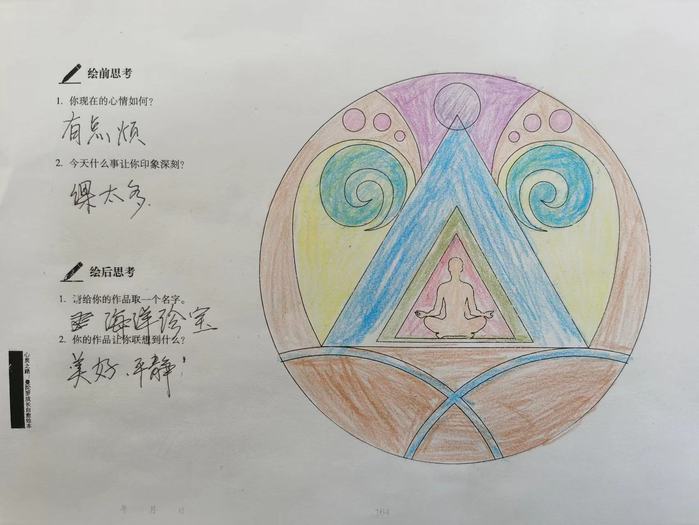 绘前思考
1. 你现在的心情如何?
有点烦
2. 今天什么事让你印象深刻?
课太多.
绘后思考
1. 请给你的作品取一个名字。
海洋珍宝
2. 你的作品让你联想到什么?
美好.平静!
心灵之路·曼陀罗成长自愈绘本
年 月 日